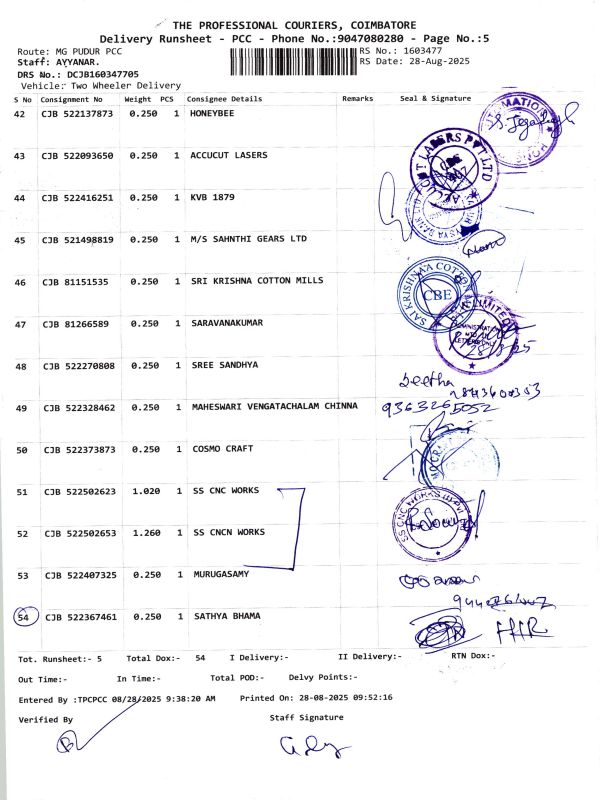 THE PROFESSIONAL COURIERS, COIMBATORE
Delivery Runsheet - PCC - Phone No.:9047080280 - Page No.:5
Route: MG PUDUR PCC RS No.: 1603477
Staff: AYYANAR. RS Date: 28-Aug-2025
DRS No.: DCJB160347705
Vehicle: Two Wheeler Delivery
S No Consignment No Weight PCS Consignee Details Remarks Seal & Signature
42 CJB 522137873 0.250 1 HONEYBEE
43 CJB 522093650 0.250 1 ACCUCUT LASERS
ACCUCUT LASERS PVT LTD
44 CJB 522416251 0.250 1 KVB 1879
45 CJB 521498819 0.250 1 M/S SAHNTHI GEARS LTD
46 CJB 81151535 0.250 1 SRI KRISHNA COTTON MILLS
CBE
47 CJB 81266589 0.250 1 SARAVANAKUMAR
48 CJB 522270808 0.250 1 SREE SANDHYA
49 CJB 522328462 0.250 1 MAHESWARI VENGATACHALAM CHINNA
9363265052
50 CJB 522373873 0.250 1 COSMO CRAFT
51 CJB 522502623 1.020 1 SS CNC WORKS
52 CJB 522502653 1.260 1 SS CNCN WORKS
53 CJB 522407325 0.250 1 MURUGASAMY
54 CJB 522367461 0.250 1 SATHYA BHAMA
Tot. Runsheet:- 5 Total Dox:- 54 I Delivery:- II Delivery:- RTN Dox:-
Out Time:- In Time:- Total POD:- Delvy Points:-
Entered By :TPCPCC 08/28/2025 9:38:20 AM Printed On: 28-08-2025 09:52:16
Verified By Staff Signature